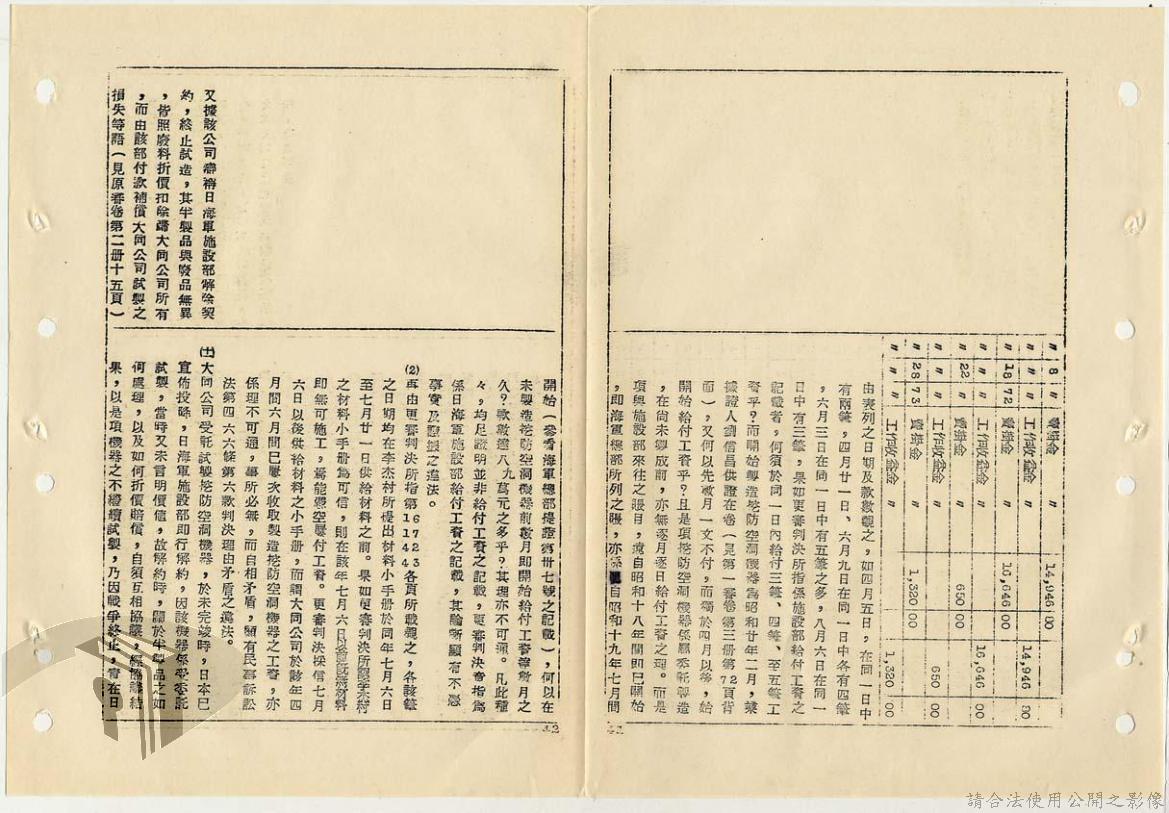 〃 8 賣掛金 〃 14,946 80
〃 〃 工作收益金 〃 14,946 80
〃 18 72 賣掛金 〃 10,646 00
〃 〃 工作收益金 〃 10,646 00
〃 22 賣掛金 〃 650 00
〃 〃 工作收益金 〃 650 00
〃 28 73 賣掛金 〃 1,320 00
〃 〃 工作收益金 〃 1,320 00
由表列之日期及款數觀之，如四月五日，在同一日中
有兩筆，四月廿一日、六月九日在同一日中各有四筆
，六月三日在同一日中有五筆之多，八月六日在同一
日中有三筆，果如更審判決所指係施設部給付工資之
記載者，何須於同一日內給付三筆、四筆、至五筆工
資乎？而開始製造挖防空洞機器為昭和廿年二月，業
據證人劉信昌供證在卷（見第一審卷第三册第72頁背
面），又何以先數月一文不付，而獨於四月以後，始
開始給付工資乎？且是項挖防空洞機器係屬委託製造
，在尚未製成前，亦無逐月逐日給付工資之理。而是
項與施設部來往之賬目，處自昭和十八年間即已開始
，即海軍總部所列之賬，亦係自昭和十九年七月間
41
開始（參看海軍總部提證第卅七號之記載），何以在
未製造挖防空洞機器前數月即開始給付工資等數月之
久？款數達八九萬元之多乎？其理亦不可通。凡此種
々，均足證明並非給付工資之記載，更審判決審指為
係日海軍施設部給付工資之記載，其論斷顯有不憑
事實及證據之違法。
(2)再由更審判決所指第167231144各頁所載觀之，各該筆
之日期均在李杰村所提出材料小手册於同年七月六日
至七月廿一日供給材料之前。果如更審判決所認李杰村
之材料小手册為可信，則在該年七月六日以前既無材料
即無可施工，焉能憑空屢付工資。更審判決採信七月
六日以後供給材料之小手册，而謂大同公司於該年四
月間六月間巳屢次收取製造挖防空洞機器之工資，亦
係理不可通，事所必無，而自相矛盾，顯有民事訴訟
法第四六六條第六款判決理由矛盾之違法。
(十)大同公司受託試製挖防空洞機器，於未完竣時，日本巳
宣佈投降，日海軍施設部即行解約，因該機器係受委託
試製，當時又未言明價值，故解約時，關於半製品之如
何處理，以及如何折價賠償，自須互相協議，經協議結
果，以是項機器之不繼續試製，乃因戰爭終止，責在日
又據該公司辯稱日海軍施設部解除契
約，終止試造，其半製品與廢品無異
，皆照廢料折價扣除歸大同公司所有
，而由該部付款補償大同公司試製之
損失等語（見原審卷第二册十五頁）
42
請合法使用公開之影像